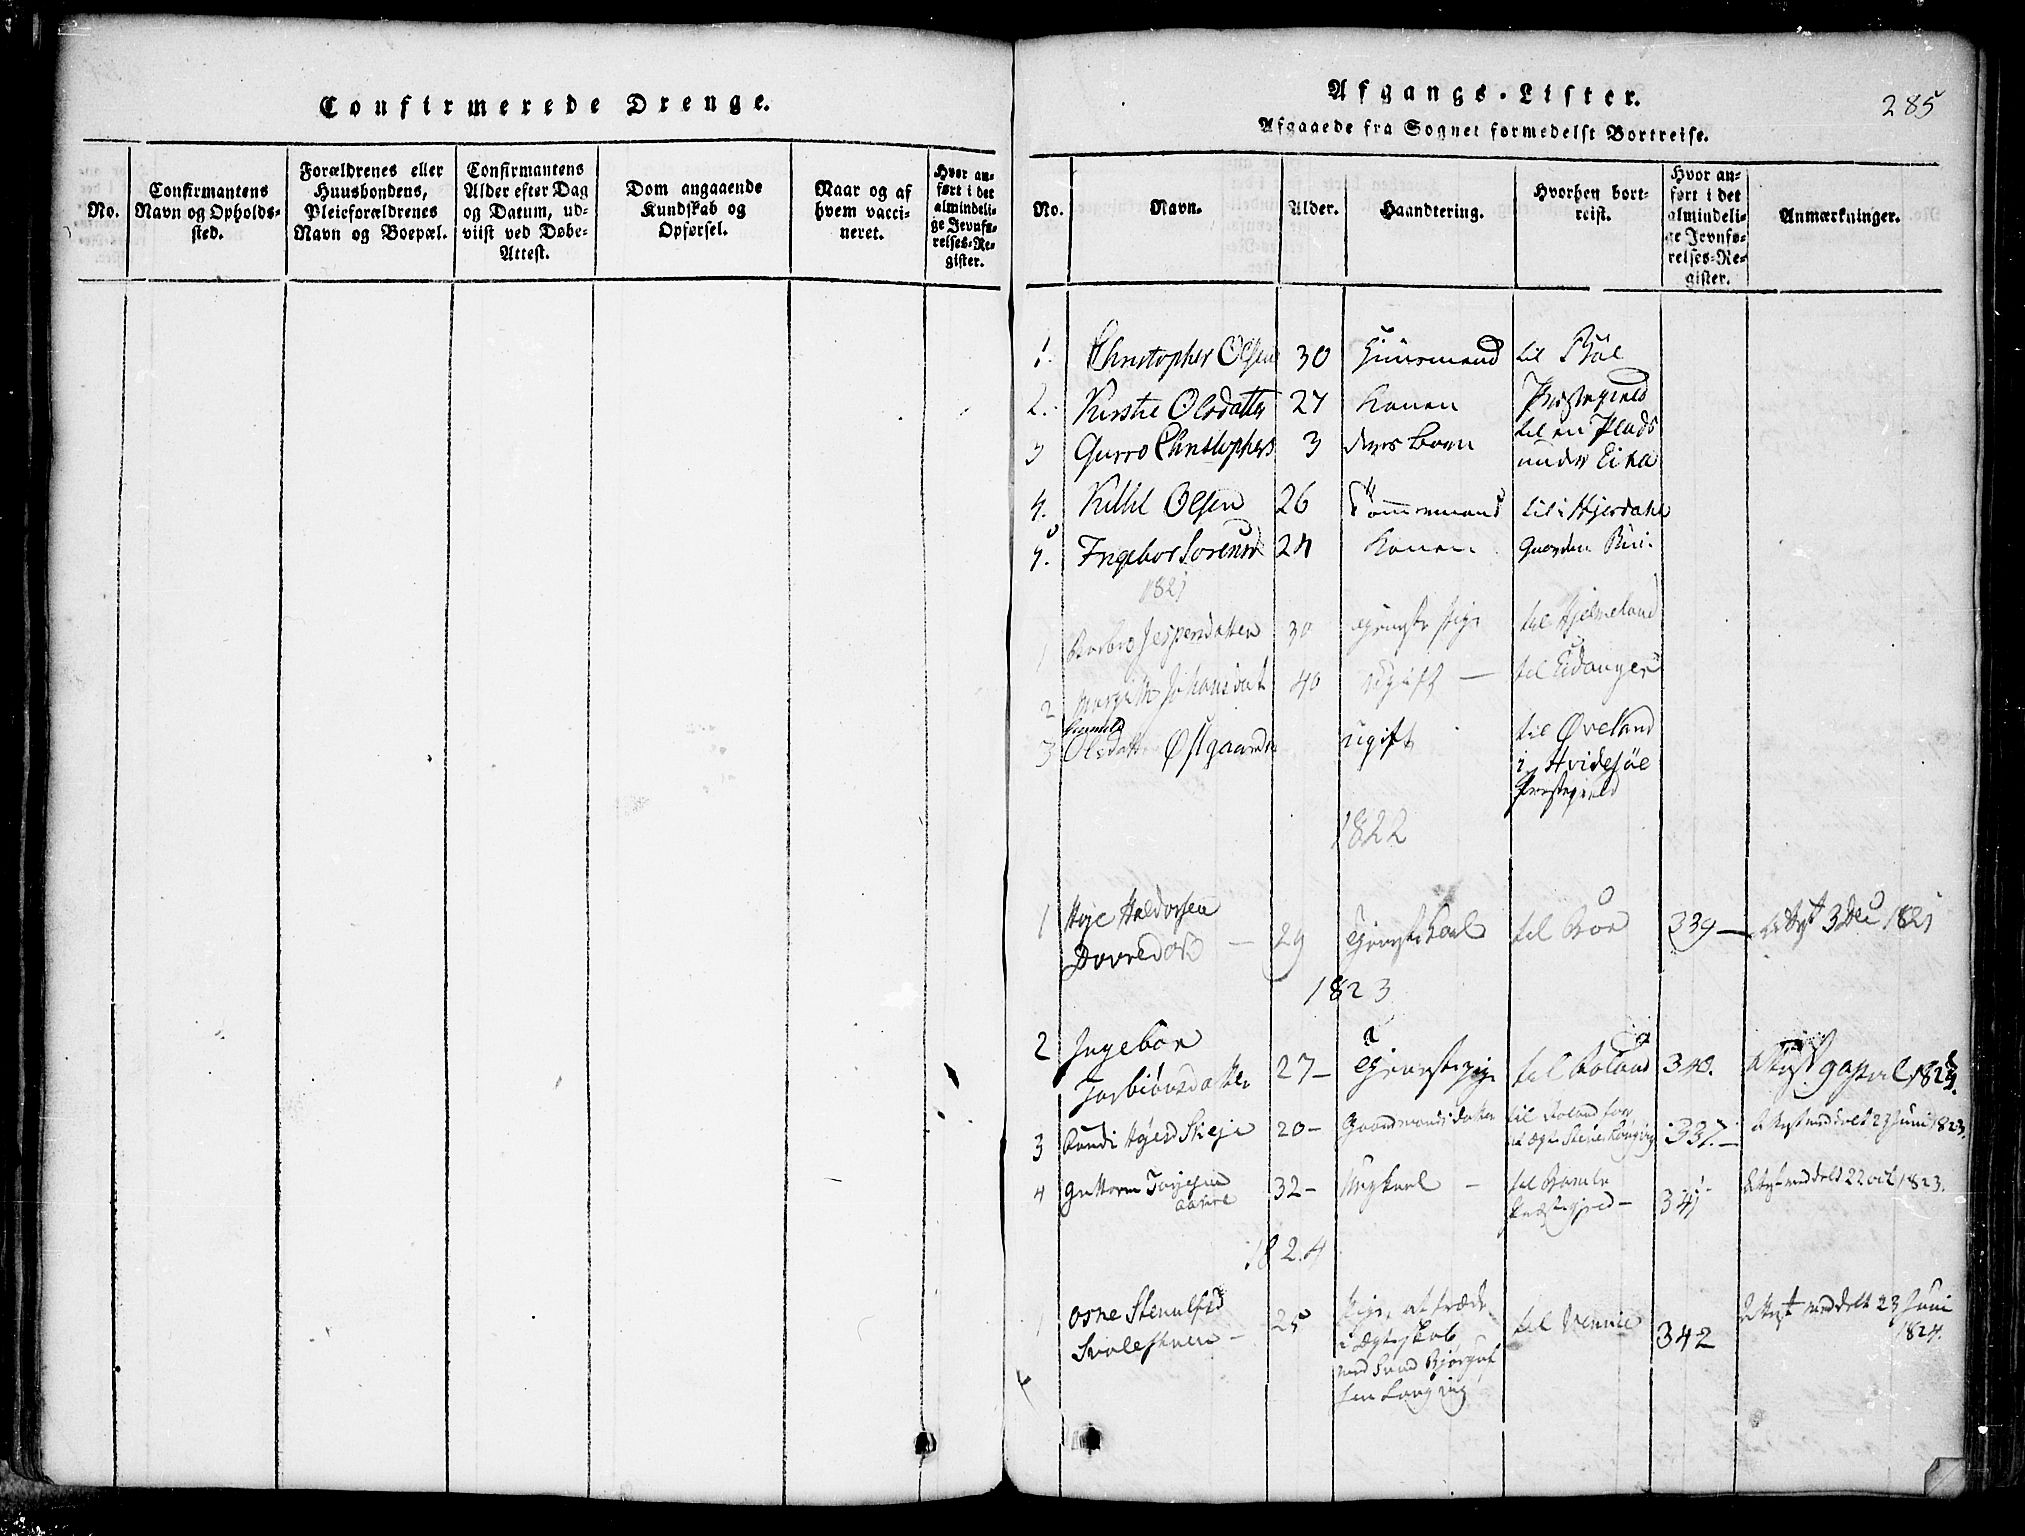 Confirmerede Drenge.
No.
Confirmantens
Navn og Opholds-
sted.
Forældrenes eller
Huusbondens,
Pleieforældrenes
Navn og Boepæl.
Confirmantens
Alder efter Dag
og Datum, ud-
viist ved Døbe-
Attest.
Dom angaaende
Kundskab og
Opførsel.
Naar og af
hvem vacci-
neret.
Hvor an-
ført i det
almindeli-
ge Jevnfø-
relses-Re-
gister.
Afgangs-Lister.
285
Afgaaede fra Sognet formedelst Bortreise.
No.
Navn.
Alder.
Haandtering.
Hvorhen bort-
reist.
Hvor an-
ført i det
almindeli-
ge Jevnfø-
relses-Re-
gister.
Anmærkninger.
1. Christopher Olsen 30 Huusmand til
2. Kirstie Olsdatter 27 Konen Præstegield
3 Gurro Christophers 3 deres Barn til en Plads
under Eika
4. Kittil Olsen 26 til Hjerdahl
5. Ingebor Sorensd 24 Konen Gaarden
1821
1 Barbro Jespersdatter 30 til Hjelmeland
2 Margith Johansdat 40 ugift — til Eidanger
Gunnild
3 Olsdatter Østgaarden ugift til Øveland
i Hvidesøe
Præstegield
1822
1 Høje Haldorsen
Dovredal — 29 til Boe 339 — Attest 3 Dec 1821
1823
2 Ingebor
Torbiörnsdatter 27 — til Boland 340. Attest 9 April 182
3 Randi 20 — Gaardmands datter til Boland for
337. — Attest meddelt 27 Juni 1823.
4 Guttorm 32 — Ungkarl — til Bamle
Præstegield — 341 Attest meddelt 22 oct 1823.
1824
1 Osne Stenulfsd 25 Pige, at træde til Vennie 342 Attest meddelt 23 Juni
1824.
i Ægteskab
med Svend Bjørgul
sen